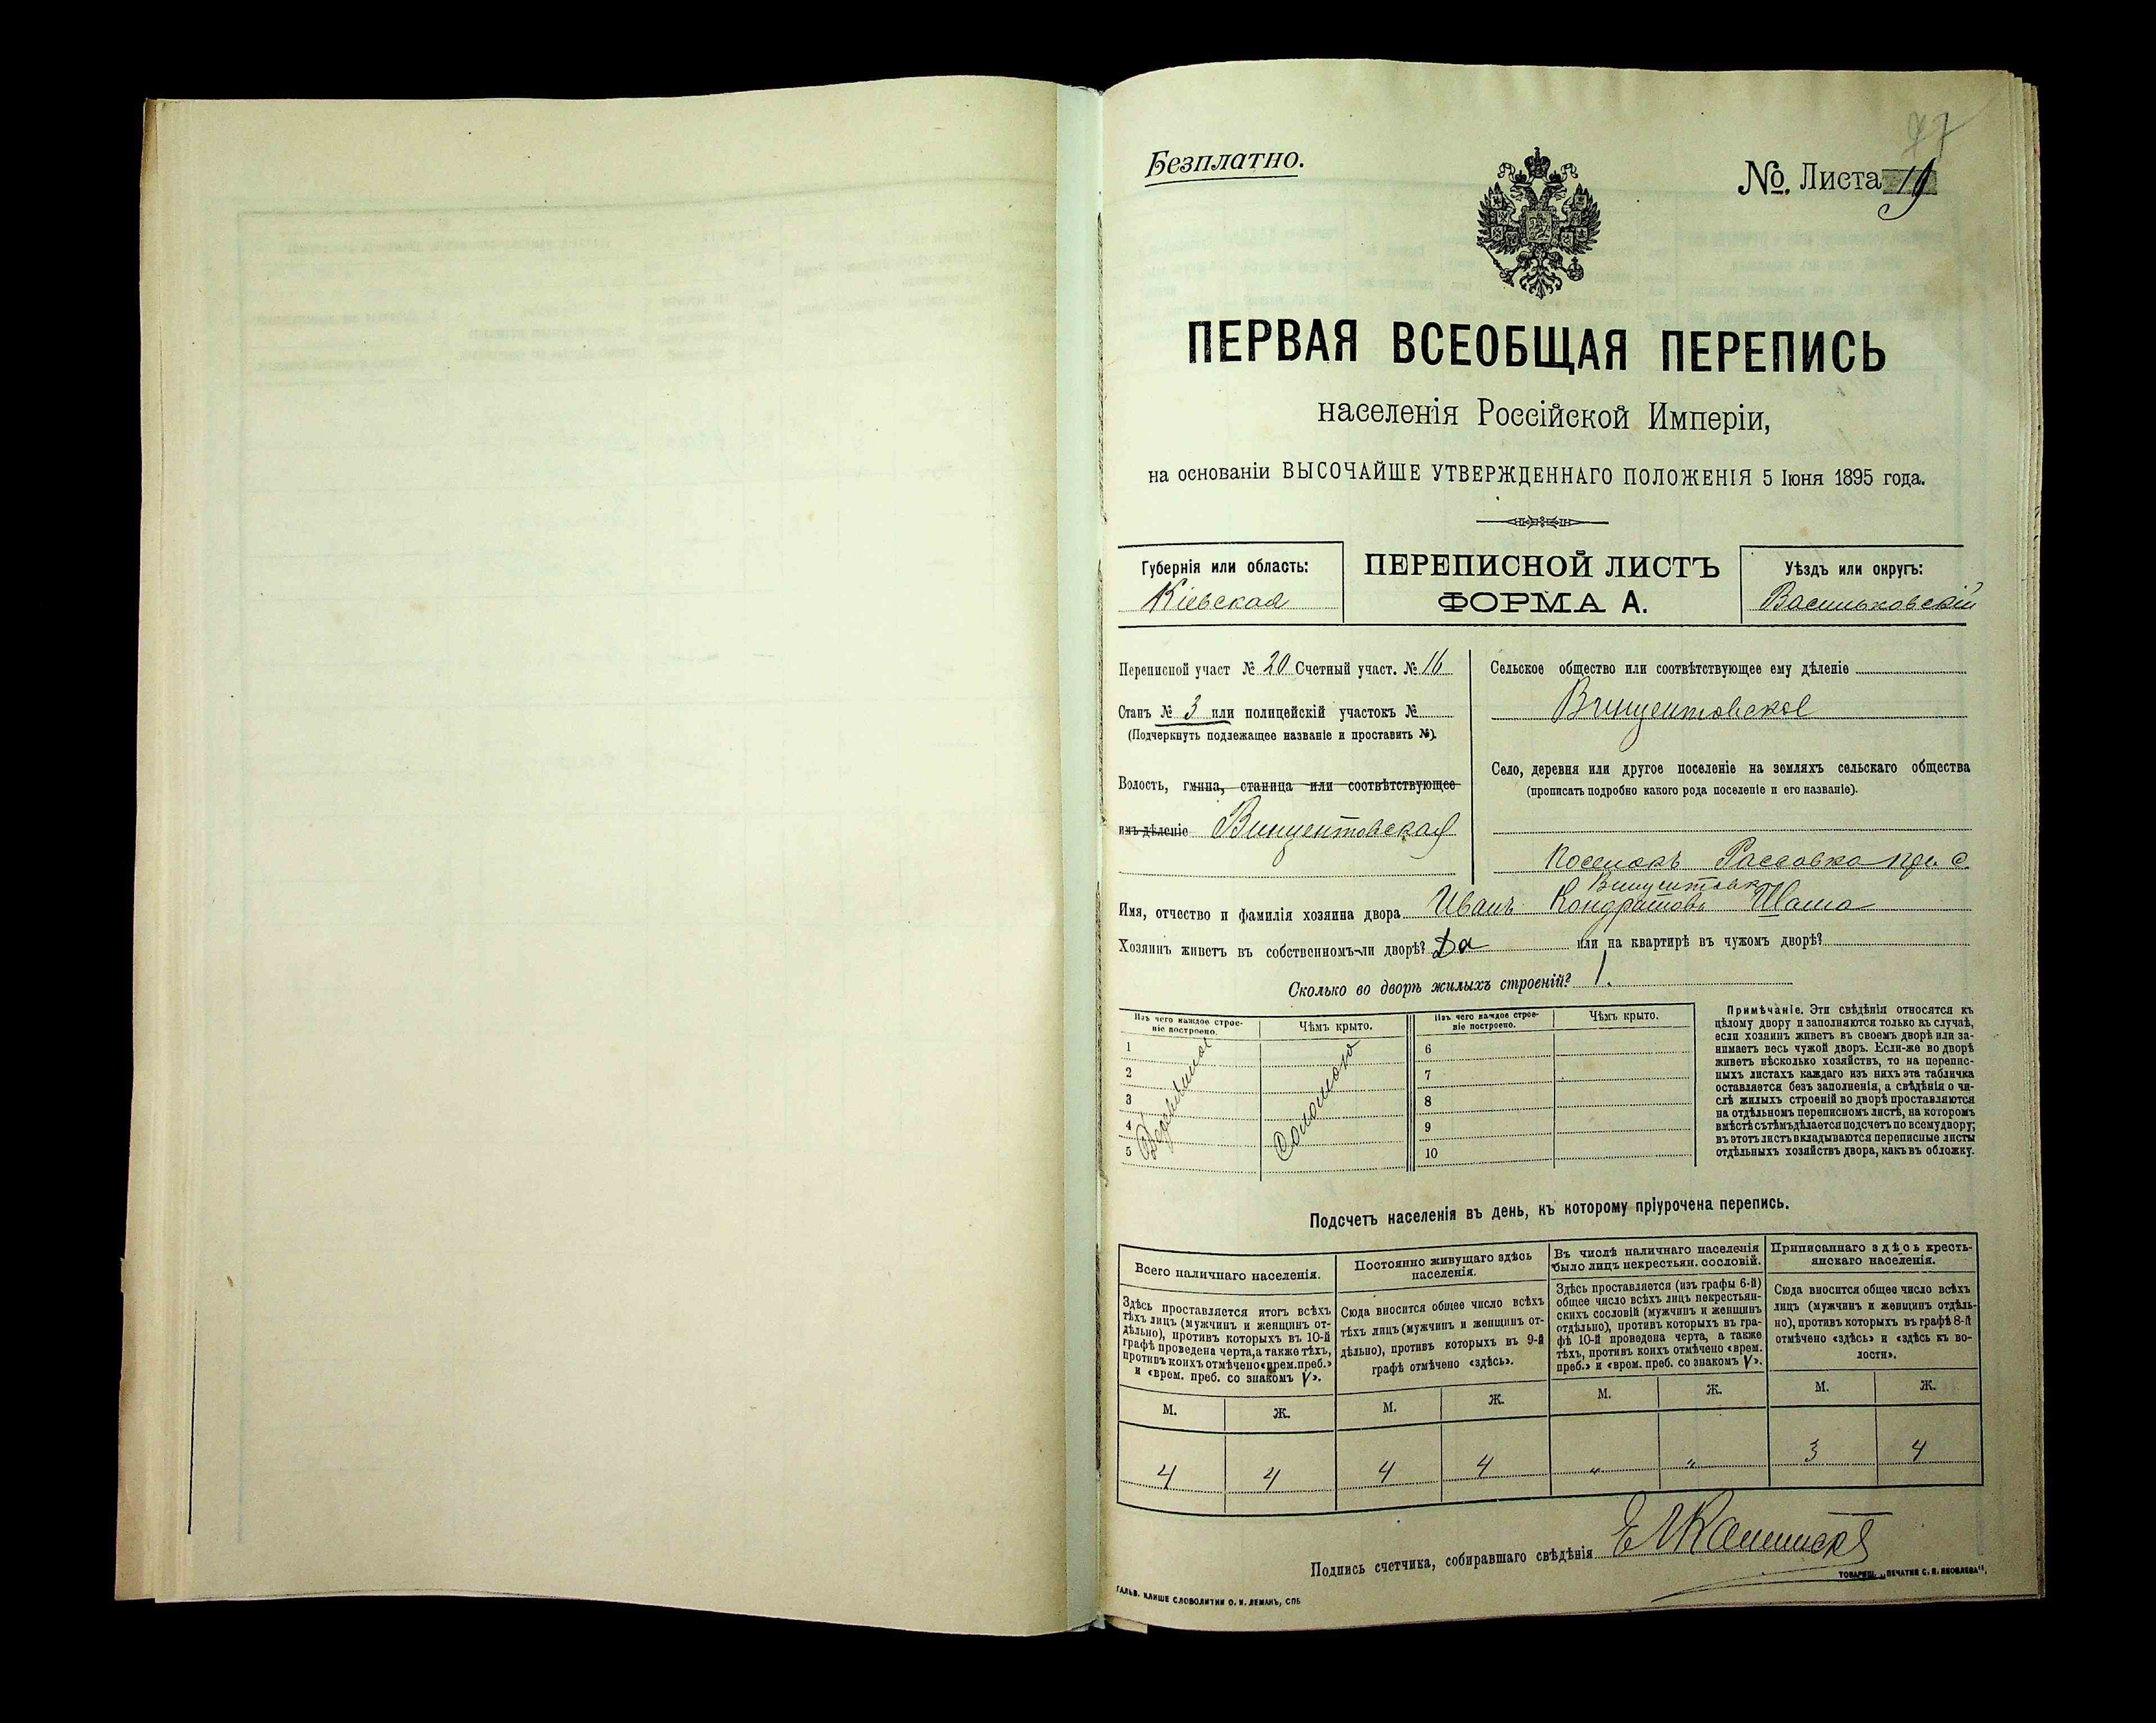 77
Безплатно.
№. Листа 19
ПЕРВАЯ ВСЕОБЩАЯ ПЕРЕПИСЬ
населенія Россійской Имперіи,
на основаніи ВЫСОЧАЙШЕ УТВЕРЖДЕННАГО ПОЛОЖЕНІЯ 5 Іюня 1895 года.
Губернія или область:
Кіевская
ПЕРЕПИСНОЙ ЛИСТЪ
ФОРМА А.
Уѣздъ или округъ:
Васильковскій
Переписной участ № 20 Счетный участ. № 16
Станъ № 3 или полицейскій участокъ №
(Подчеркнуть подлежащее названіе и проставить №).
Волость, гмина, станица или соотвѣтствующее
имъ дѣленіе Винцентовская
Сельское общество или соотвѣтствующее ему дѣленіе
Винцентовское
Село, деревня или другое поселеніе на земляхъ сельскаго общества
(прописать подробно какого рода поселеніе и его названіе).
Поселокъ Рассовка при с.
Винцентовка
Имя, отчество и фамилія хозяина двора Иванъ Кондратовъ Шаша
Хозяинъ живетъ въ собственномъ-ли дворѣ? Да или на квартирѣ въ чужомъ дворѣ?
Сколько во дворѣ жилыхъ строеній? 1.
Изъ чего каждое строе-
ніе построено.
Чѣмъ крыто.
Изъ чего каждое строе-
ніе построено.
Чѣмъ крыто.
1 6
2 7
3 8
4 9
5 10
Соломою
Примѣчаніе. Эти свѣдѣнія относятся къ
цѣлому двору и заполняются только въ случаѣ,
если хозяинъ живетъ въ своемъ дворѣ или за-
нимаетъ весь чужой дворъ. Если-же во дворѣ
живетъ нѣсколько хозяйствъ, то на перепис-
ныхъ листахъ каждаго изъ нихъ эта табличка
оставляется безъ заполненія, а свѣдѣнія о чи-
слѣ жилыхъ строеній во дворѣ проставляются
на отдѣльномъ переписномъ листѣ, на которомъ
вмѣстѣ съ тѣмъ дѣлается подсчетъ по всему двору;
въ этотъ листъ вкладываются переписные листы
отдѣльныхъ хозяйствъ двора, какъ въ обложку.
Подсчетъ населенія въ день, къ которому пріурочена перепись.
Всего наличнаго населенія.
Здѣсь проставляется итогъ всѣхъ
тѣхъ лицъ (мужчинъ и женщинъ от-
дѣльно), противъ которыхъ въ 10-й
графѣ проведена черта, а также тѣхъ,
противъ коихъ отмѣчено «врем. преб.»
и «врем. преб. со знакомъ V».
Постоянно живущаго здѣсь
населенія.
Сюда вносится общее число всѣхъ
тѣхъ лицъ (мужчинъ и женщинъ от-
дѣльно), противъ которыхъ въ 9-й
графѣ отмѣчено «здѣсь».
Въ числѣ наличнаго населенія
было лицъ некрестьян. сословій.
Здѣсь проставляется (изъ графы 6-й)
общее число всѣхъ лицъ некрестьян-
скихъ сословій (мужчинъ и женщинъ
отдѣльно), противъ которыхъ въ гра-
фѣ 10-й проведена черта, а также
тѣхъ, противъ коихъ отмѣчено «врем.
преб.» и «врем. преб. со знакомъ V».
Приписаннаго здѣсь кресть-
янскаго населенія.
Сюда вносится общее число всѣхъ
лицъ (мужчинъ и женщинъ отдѣль-
но), противъ которыхъ въ графѣ 8-й
отмѣчено «здѣсь» и «здѣсь къ во-
лости».
М. Ж. М. Ж. М. Ж. М. Ж.
4 4 4 4 „ „ 3 4
Подпись счетчика, собиравшаго свѣдѣнія
ГАЛЬВ. КЛИШЕ СЛОВОЛИТНИ О. И. ЛЕМАНЪ, СПБ
ТОВАРИЩ. „ПЕЧАТНЯ С. П. ЯКОВЛЕВА“.